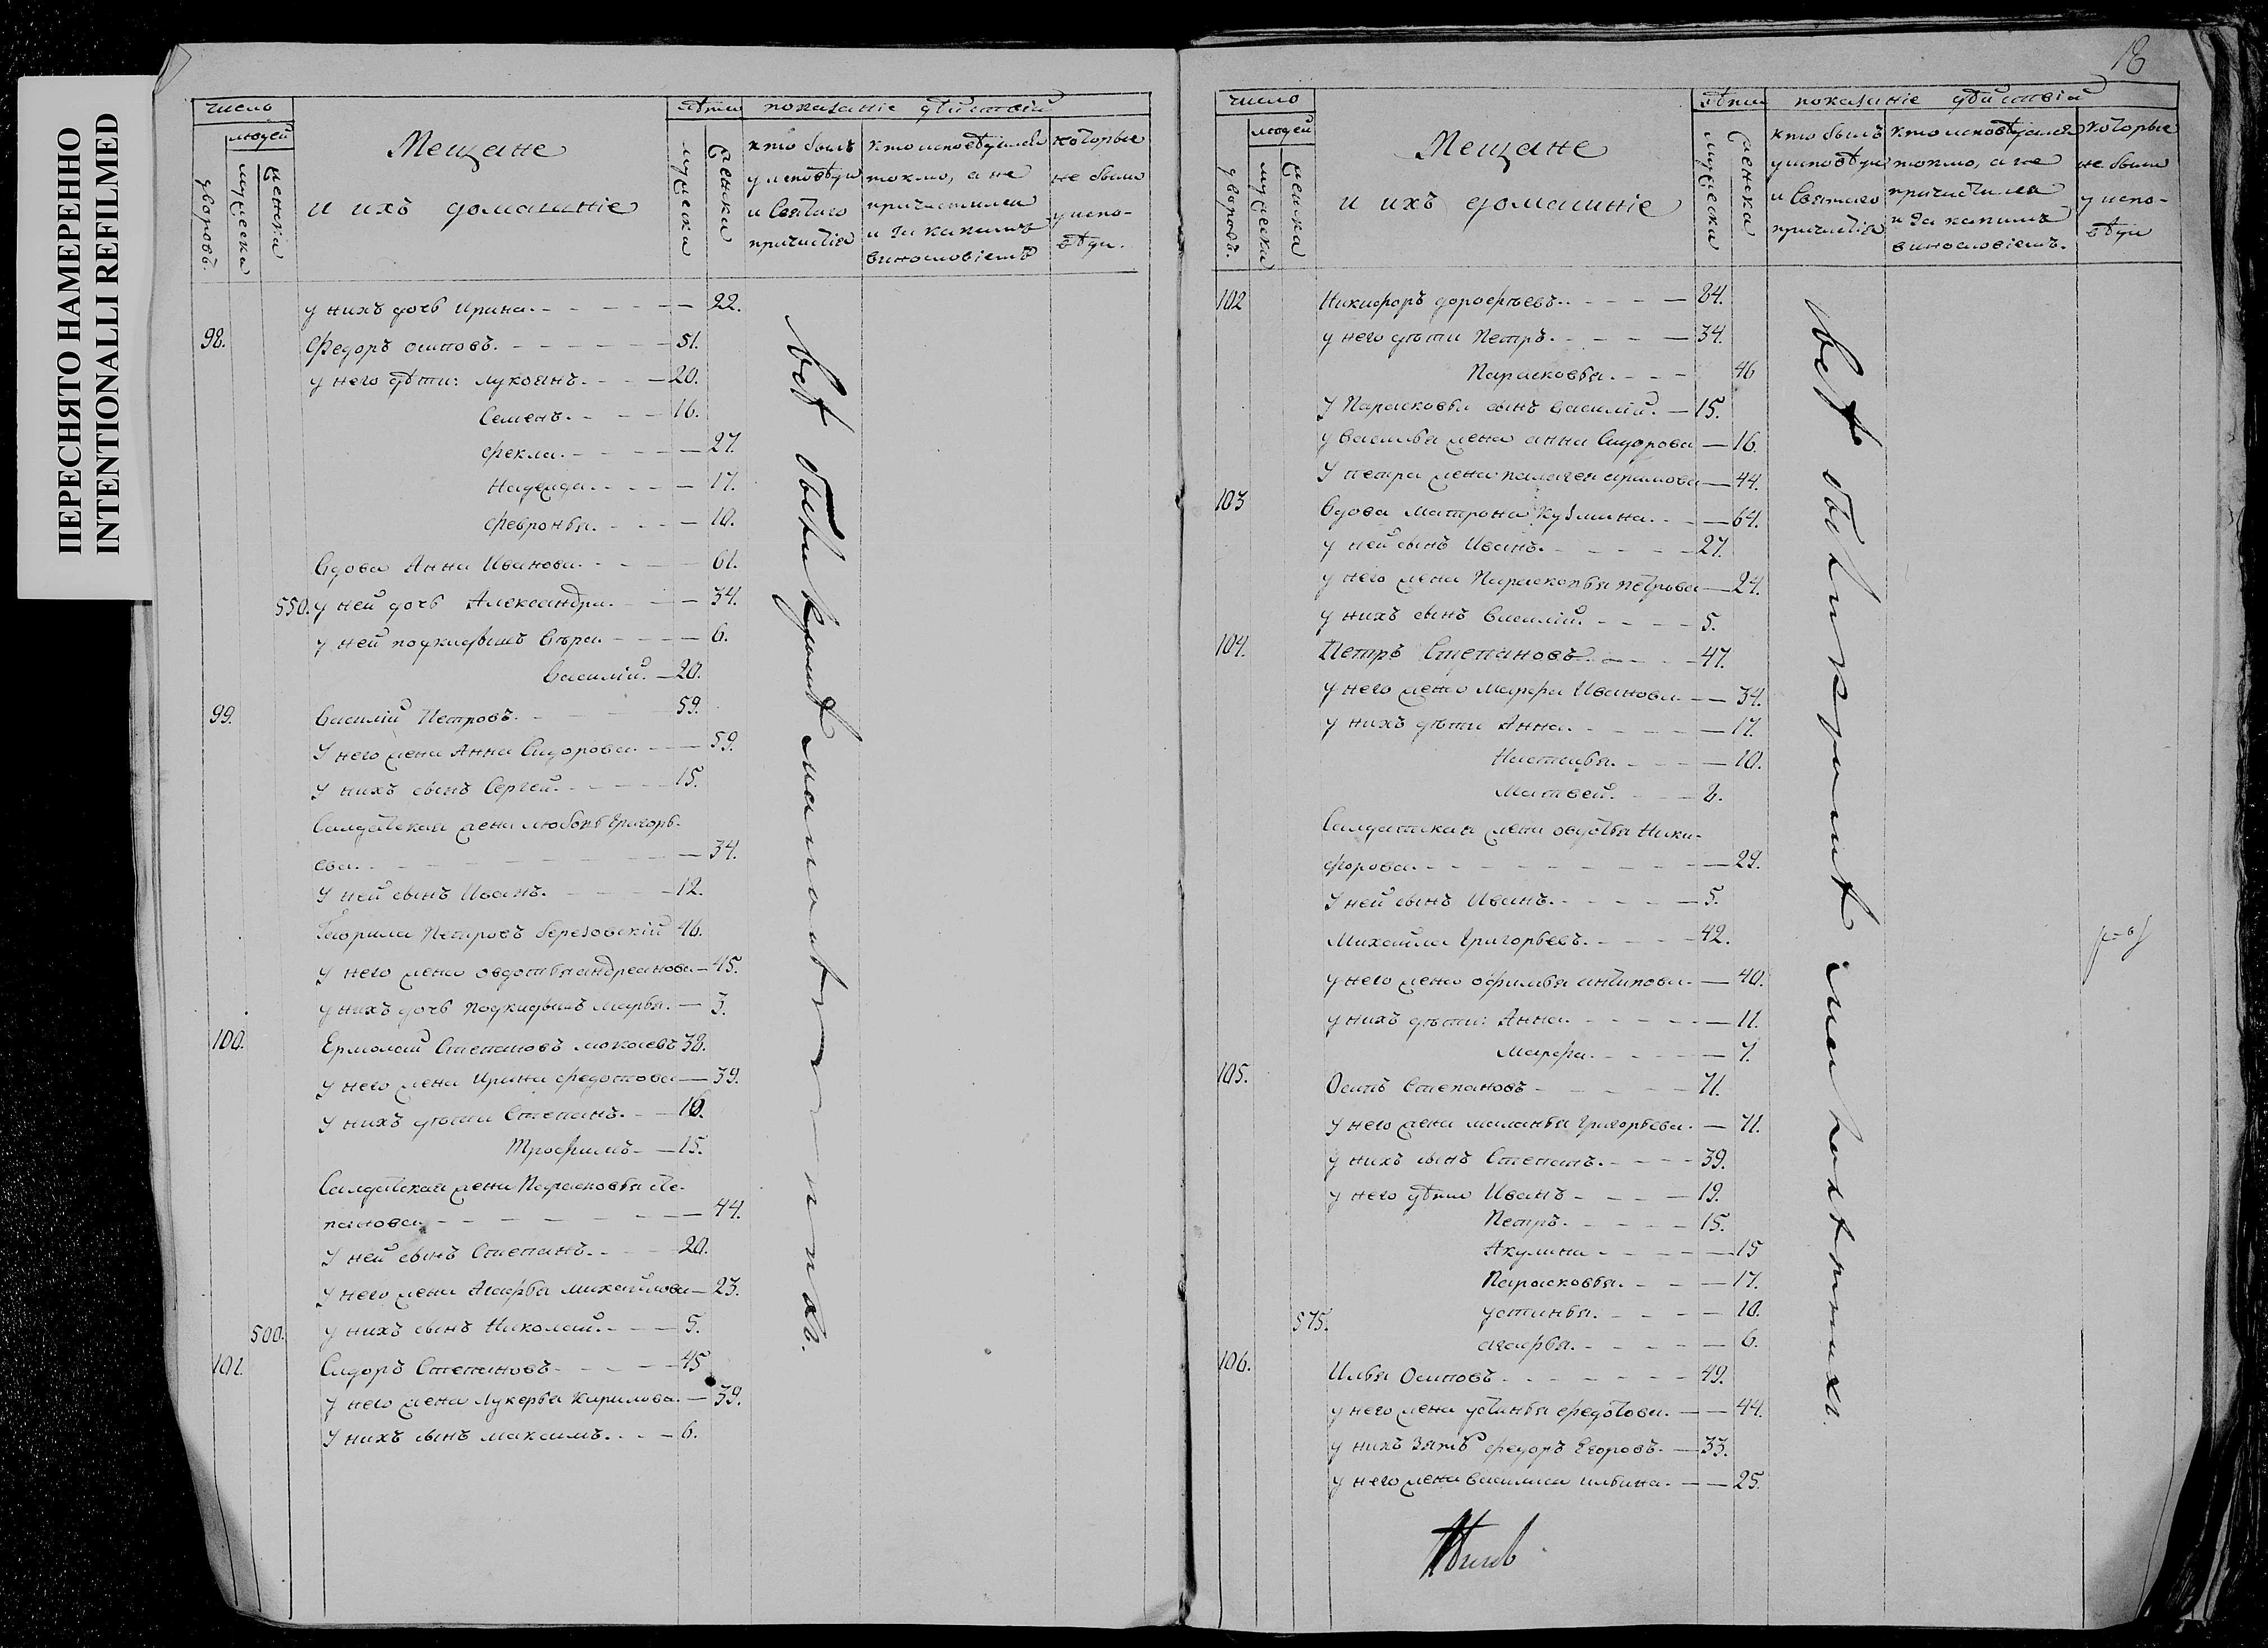 ПЕРЕСНЯТО НАМЕРЕННО
INTENTIONALLI REFILMED
число
людей
дворовъ.
мужеска
женска
Мещане
и ихъ домашніе
лѣта
мужеска
женска
показаніе дѣйствій
кто былъ
у исповѣди
и Святаго
причастія
кто исповѣдался
токмо, а не
причастился
и за какимъ
винословіемъ
которые
не были
у испо-
вѣди.
у нихъ дочь Ирина. 22.
98. Федоръ осиповъ. 51.
у него дѣти: лукоянъ. 20.
Семенъ. 16.
фекла. 27.
Надежда. 17.
февронья. 10.
Вдова Анна Иванова. 61.
550. у ней дочь Александра. 34.
у ней подкидышъ вѣра 6.
Василій. 20.
99. Василій Петровъ. 59.
У него жена Анна Сидорова. 59.
У нихъ сынъ Сергей. 15.
Салдатская жена любовь григорь-
ева. 34.
У ней сынъ Иванъ. 12.
Гаврила Петровъ березовскій 46.
у него жена овдотья андреанова 45.
у нихъ дочь подкидышъ марья. 3.
100. Ермолай Степановъ мокаевъ 38.
у него жена Ирина федотова 39.
У нихъ дѣти Степанъ. 16.
Трофимъ 15.
Салдатская жена Парасковья сте-
панова. 44.
У ней сынъ Степанъ. 20.
У него жена Агафья михайлова 23.
500. у нихъ сынъ Николай. 5.
101. Сидоръ Степановъ 45
у него жена Лукерья Кирилова. 39.
У нихъ сынъ максимъ. 6.
18
число
людей
дворовъ.
мужеска
женска
Мещане
и ихъ домашніе
лѣта
мужеска
женска
показаніе дѣйствій
кто былъ
у исповѣди
и Святаго
причастія
кто исповѣдался
токмо, а не
причастился
и за какимъ
винословіемъ.
которые
не были
у испо-
вѣди
102 Никифоръ дорофѣевъ. 84.
у него дѣти Петръ. 34.
Парасковья. 46
У Парасковьи сынъ василій. 15.
у василья жена анна Сидорова 16.
У петра жена 44.
103 Вдова матрона Кузмина. 64.
у ней сынъ Иванъ. 27.
у него жена Парасковья петрова 24.
у нихъ сынъ василій. 5.
104. Петръ Степановъ. 47.
у него жена марфа Иванова. 34.
у нихъ дѣти Анна. 17.
Настасья. 10.
Матвей. 8.
Салдатская жена овдотья Ники-
форова. 29.
У ней сынъ Иванъ. 5.
Михайла григорьевъ. 42.
у него жена офимья антипова. 40.
у нихъ дѣти: Анна. 11.
марфа. 7.
105. Осипъ Степановъ 71.
У него жена маланья григорьева. 71.
у нихъ сынъ Степанъ. 39.
у него дѣти Иванъ 19.
Петръ. 15.
Акулина 15
Парасковья. 17.
575. устинья. 10.
агафья. 6.
106. Илья Осиповъ 49.
у него жена устинья федотова. 44.
у нихъ зять федоръ Егоровъ. 33.
у него жена василиса ильина. 25.